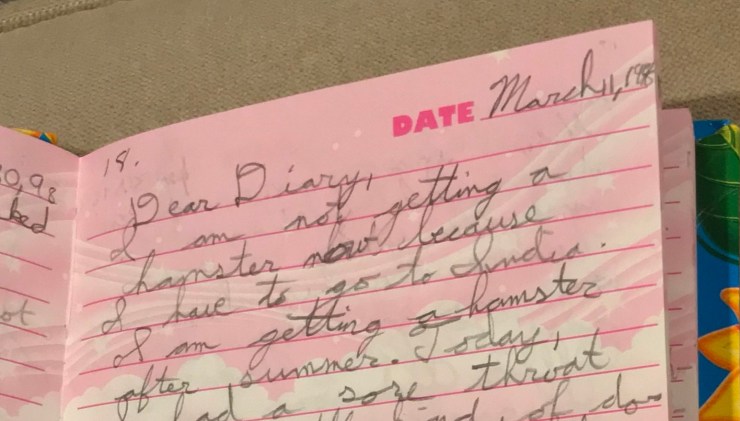 DATE March 11, 1998
18.
Dear Diary,
I am not getting a
hamster now because
I have to go to India.
I am getting a hamster
after summer. Today, I
had a sore throat
of